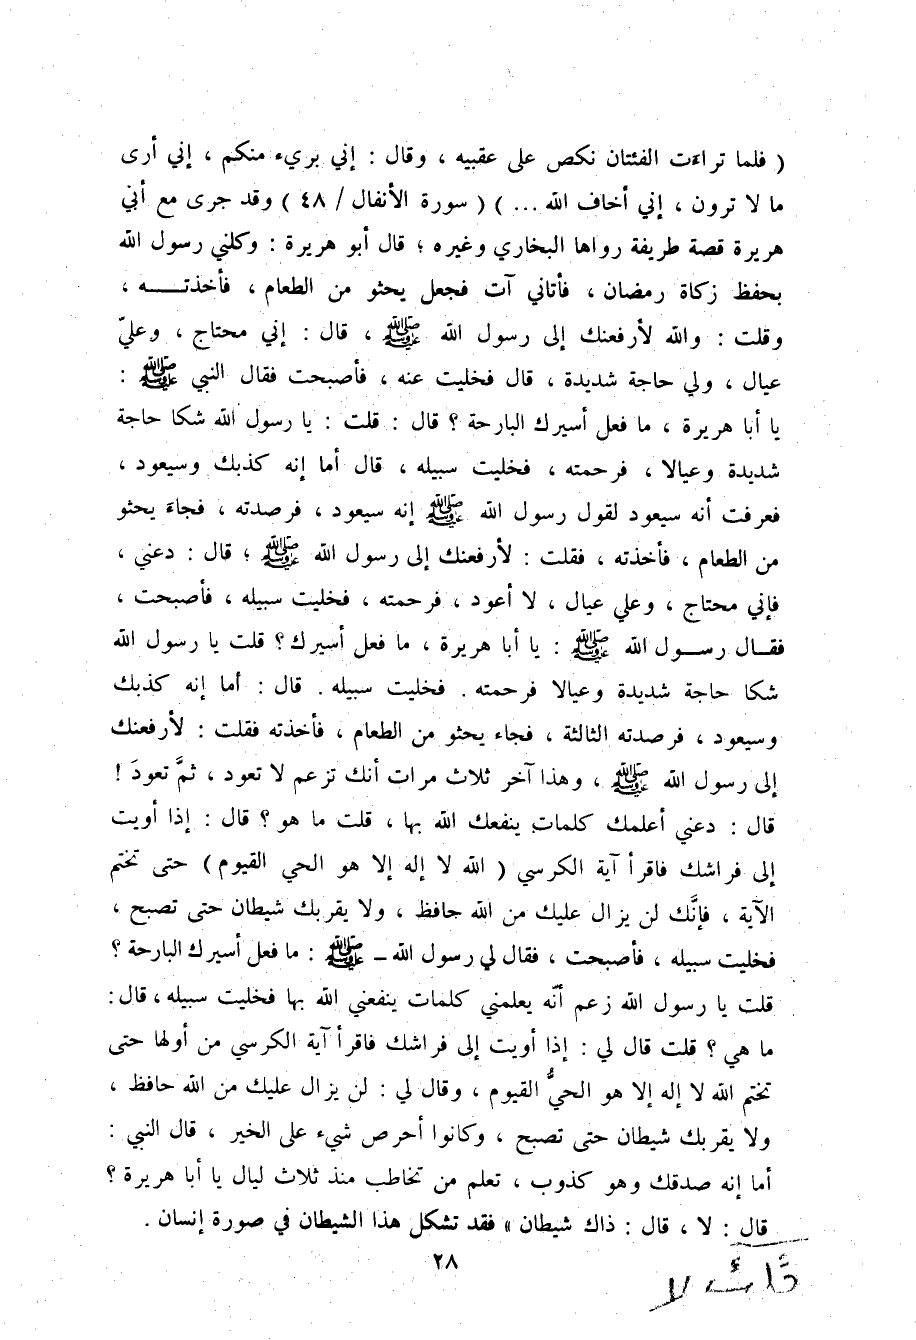 ( فلما تراءت الفئتان نكص على عقبيه ، وقال : إني بريء منكم ، إني أرى
ما لا ترون ، إني أخاف الله ... ) ( سورة الأنفال / ٤٨ ) وقد جرى مع أبي
هريرة قصة طريفة رواها البخاري وغيره ؛ قال أبو هريرة : وكلني رسول الله
بحفظ زكاة رمضان ، فأتاني آت فجعل يحثو من الطعام ، فأخذتـــه ،
وقلت : والله لأرفعنك إلى رسول الله ﷺ ، قال : إني محتاج ، وعليّ
عيال ، ولي حاجة شديدة ، قال فخليت عنه ، فأصبحت فقال النبي ﷺ :
يا أبا هريرة ، ما فعل أسيرك البارحة ؟ قال : قلت : يا رسول الله شكا حاجة
شديدة وعيالا ، فرحمته ، فخليت سبيله ، قال أما إنه كذبك وسيعود ،
فعرفت أنه سيعود لقول رسول الله ﷺ إنه سيعود ، فرصدته ، فجاءَ يحثو
من الطعام ، فأخذته ، فقلت : لأرفعنك إلى رسول الله ﷺ ؛ قال : دعني ،
فإني محتاج ، وعلي عيال ، لا أعود ، فرحمته ، فخليت سبيله ، فأصبحت ،
فقـال رسـول الله ﷺ : يا أبا هريرة ، ما فعل أسيرك ؟ قلت يا رسول الله
شكا حاجة شديدة وعيالا فرحمته . فخليت سبيله . قال : أما إنه كذبك
وسيعود ، فرصدته الثالثة ، فجاء يحثو من الطعام ، فأخذته فقلت : لأرفعنك
إلى رسول الله ﷺ ، وهذا آخر ثلاث مرات أنك تزعم لا تعود ، ثمَّ تعودَ !
قال : دعني أعلمك كلماتٍ ينفعك الله بها ، قلت ما هو ؟ قال : إذا أويت
إلى فراشك فاقرأ آية الكرسي ( الله لا إله إلا هو الحي القيوم ) حتى تختم
الآية ، فإنَّك لن يزال عليك من الله حافظ ، ولا يقربك شيطان حتى تصبح ،
فخليت سبيله ، فأصبحت ، فقال لي رسول الله ـ ﷺ : ما فعل أسيرك البارحة ؟
قلت يا رسول الله زعم أنّه يعلمني كلمات ينفعني الله بها فخليت سبيله ، قال :
ما هي ؟ قلت قال لي : إذا أويت إلى فراشك فاقرأ آية الكرسي من أولها حتى
تختم الله لا إله إلا هو الحيُّ القيوم ، وقال لي : لن يزال عليك من الله حافظ ،
ولا يقربك شيطان حتى تصبح ، وكانوا أحرص شيء على الخير ، قال النبي :
أما إنه صدقك وهو كذوب ، تعلم من تخاطب منذ ثلاث ليال يا أبا هريرة ؟
قال : لا ، قال : ذاك شيطان » فقد تشكل هذا الشيطان في صورة إنسان .
٢٨